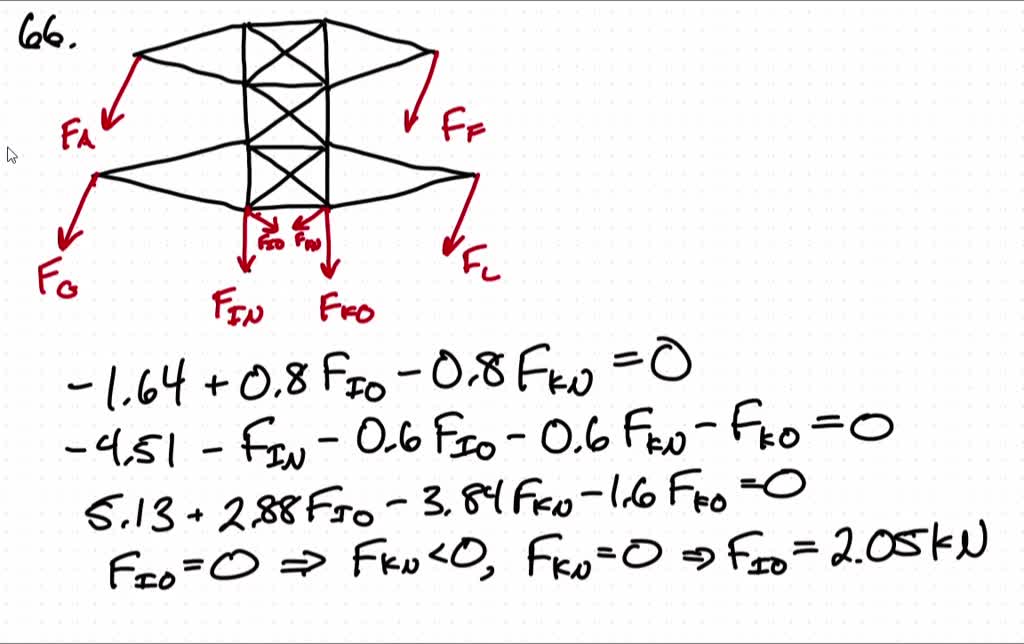 66.
FA
FF
FIO FKN
FG
FL
FIN FKO
-1.64 + 0.8 FIO - 0.8 FKN = 0
-4.51 - FIN - 0.6 FIO - 0.6 FKN - FKO = 0
5.13 + 2.88 FIO - 3.84 FKN - 1.6 FKO = 0
FIO = 0 ⇒ FKN < 0, FKN = 0 ⇒ FIO = 2.05 kN